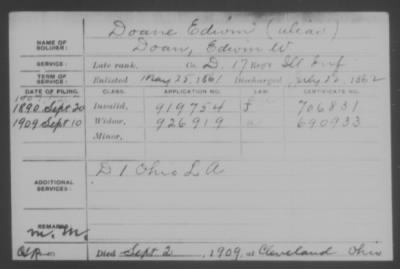 NAME OF SOLDIER: Doane Edwin (alias)
Doan, Edwin W
SERVICE: Late rank, Co D, 17 Regt Ill Inf
TERM OF SERVICE: Enlisted May 25, 1861 Discharged 1862
DATE OF FILING. CLASS. APPLICATION NO. LAW. CERTIFICATE NO.
1890 Sept 20 Invalid, 919754 706831
1909 Sept 10 Widow, 926919 690933
Minor,
ADDITIONAL SERVICES: D 1 Ohio L A
REMARKS:
M. M.
Died Sept 2, 1909, at Cleveland Ohio